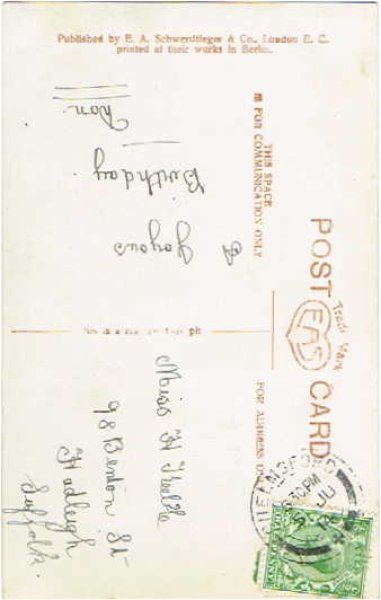 Published by E. A. Schwerdtfeger & Co., London E. C.
printed at their works in Berlin.
POST CARD
Trade Mark
EAS
THIS SPACE
FOR COMMUNICATION ONLY
FOR ADDRESS ONLY
A
Joyous
Birthday
Ron
Miss H
98 Benton St
Hadleigh
Suffolk.